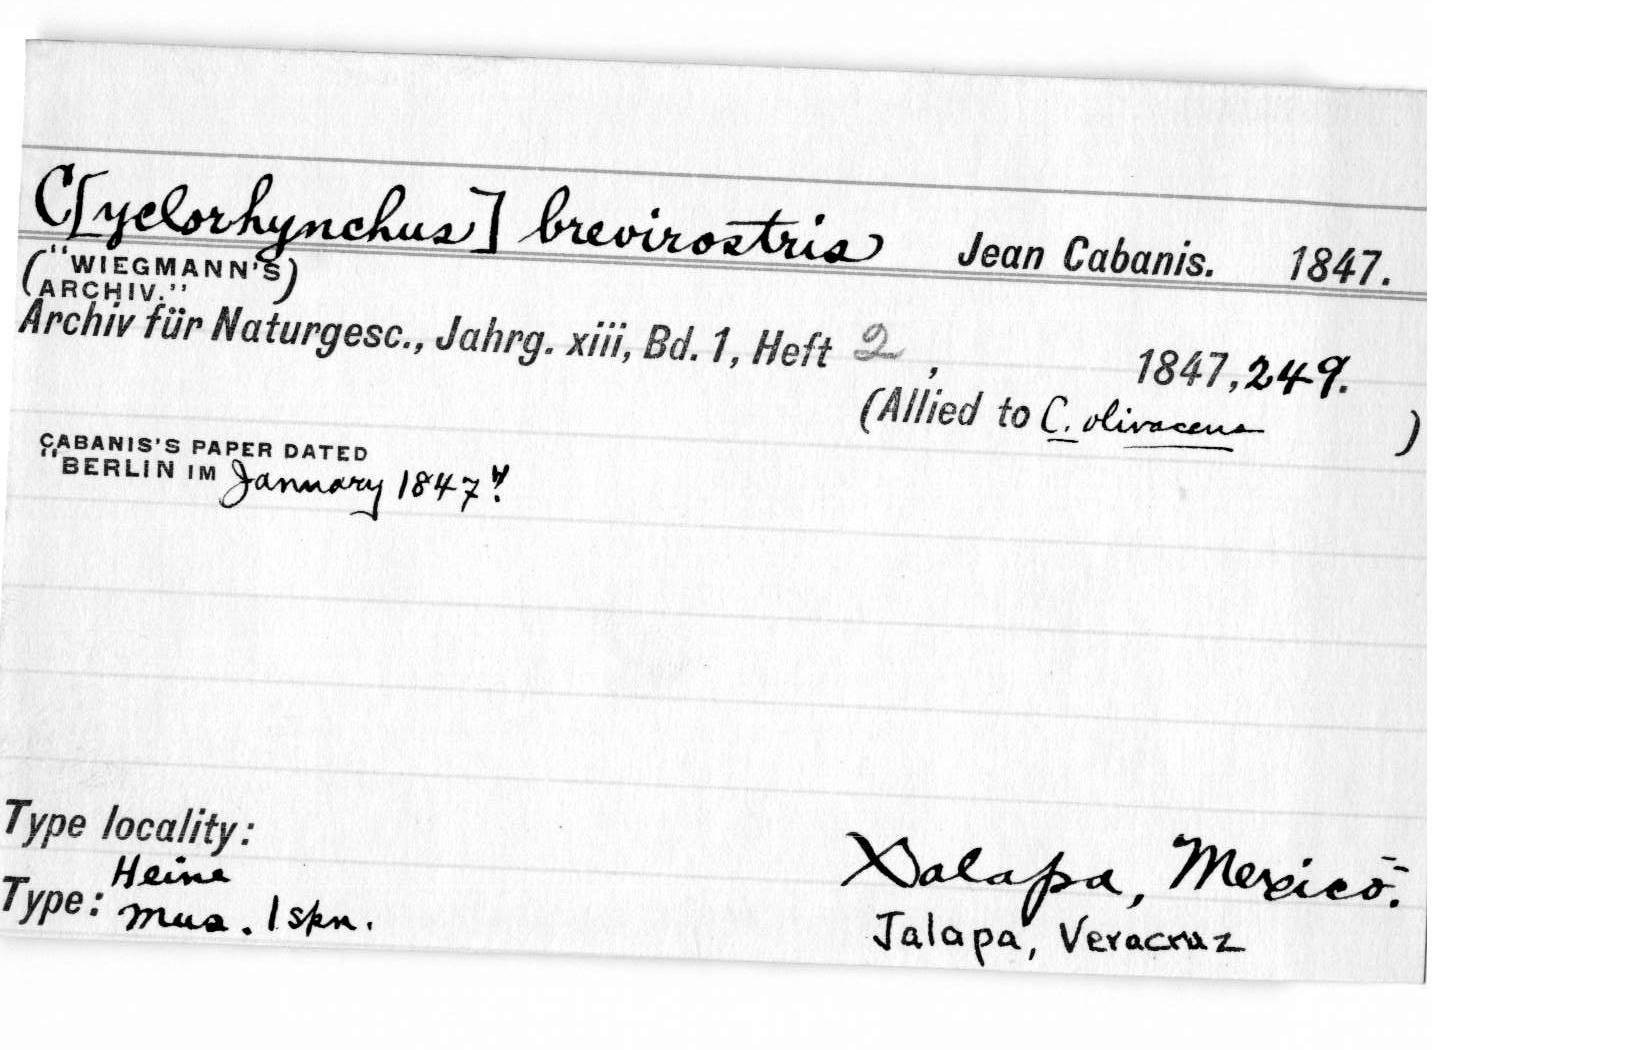 C[yclorhynchus] brevirostris Jean Cabanis. 1847.
("WIEGMANN'S
ARCHIV.")
Archiv für Naturgesc., Jahrg. xiii, Bd. 1, Heft 2, 1847, 249.
(Allied to C. olivaceus )
CABANIS'S PAPER DATED
"BERLIN IM January 1847".
Type locality: Xalapa, Mexico.
Jalapa, Veracruz
Type: Heine
Mus. 1 spn.